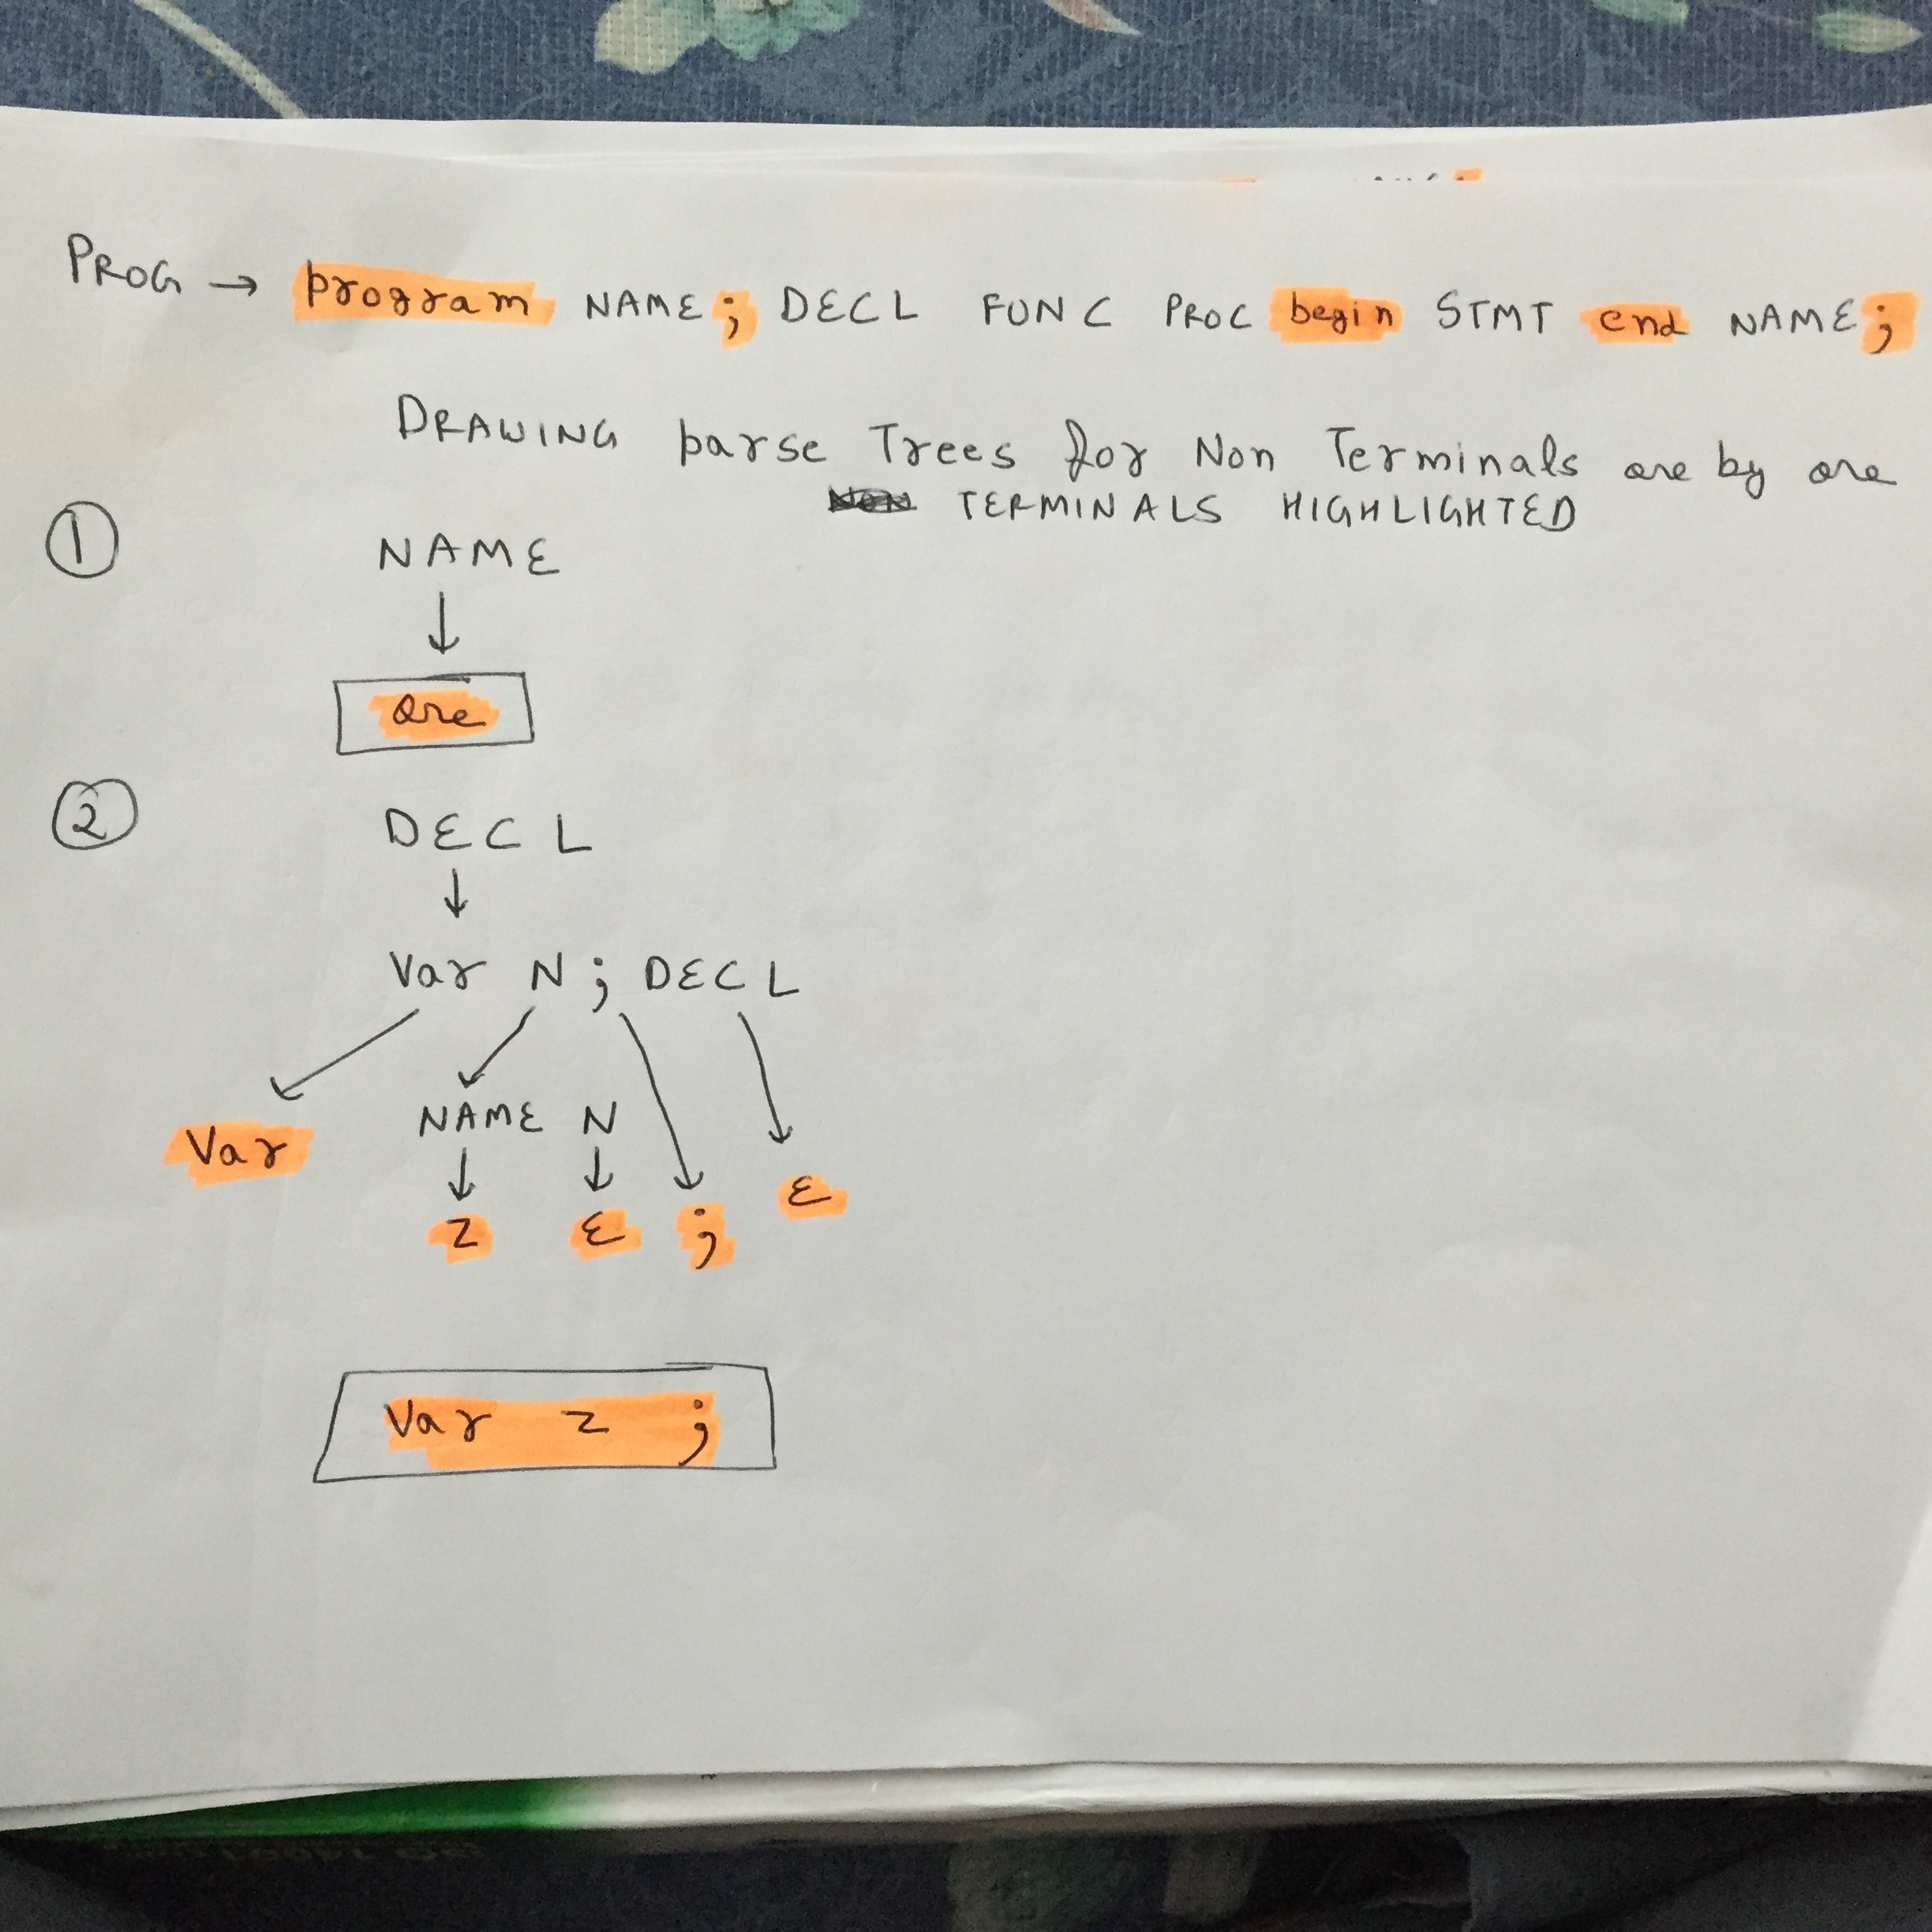 PROG → program NAME; DECL FUNC PROC begin STMT end NAME;
DRAWING parse Trees for Non Terminals one by one
TERMINALS HIGHLIGHTED
① NAME
↓
one
② DECL
↓
Var N ; DECL
Var NAME N
↓ ↓
z ε ; ε
Var z ;